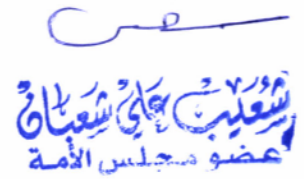 شُعَيبْ عَلِيْ شَعبَانْ
عضو مجلس الأمة